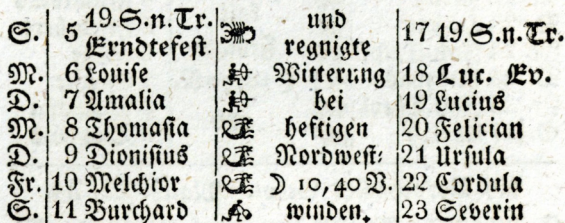 S. 5 19.S.n.Tr. Erndtefest. und regnigte 17 19.S.n.Tr.
M. 6 Louise Witterung 18 Luc. Ev.
D. 7 Amalia bei 19 Lucius
M. 8 Thomasia heftigen 20 Felician
D. 9 Dionisius Nordwest⸗ 21 Ursula
Fr. 10 Melchior ☽ 10,40 V. 22 Cordula
S. 11 Burchard winden. 23 Severin